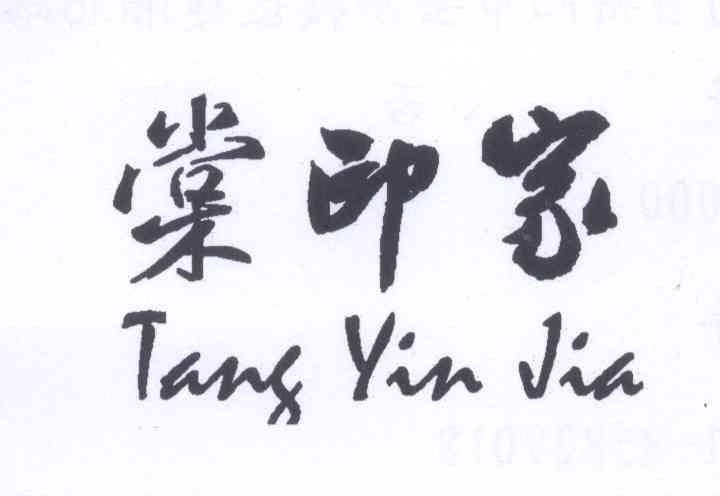 棠印家
Tang Yin Jia